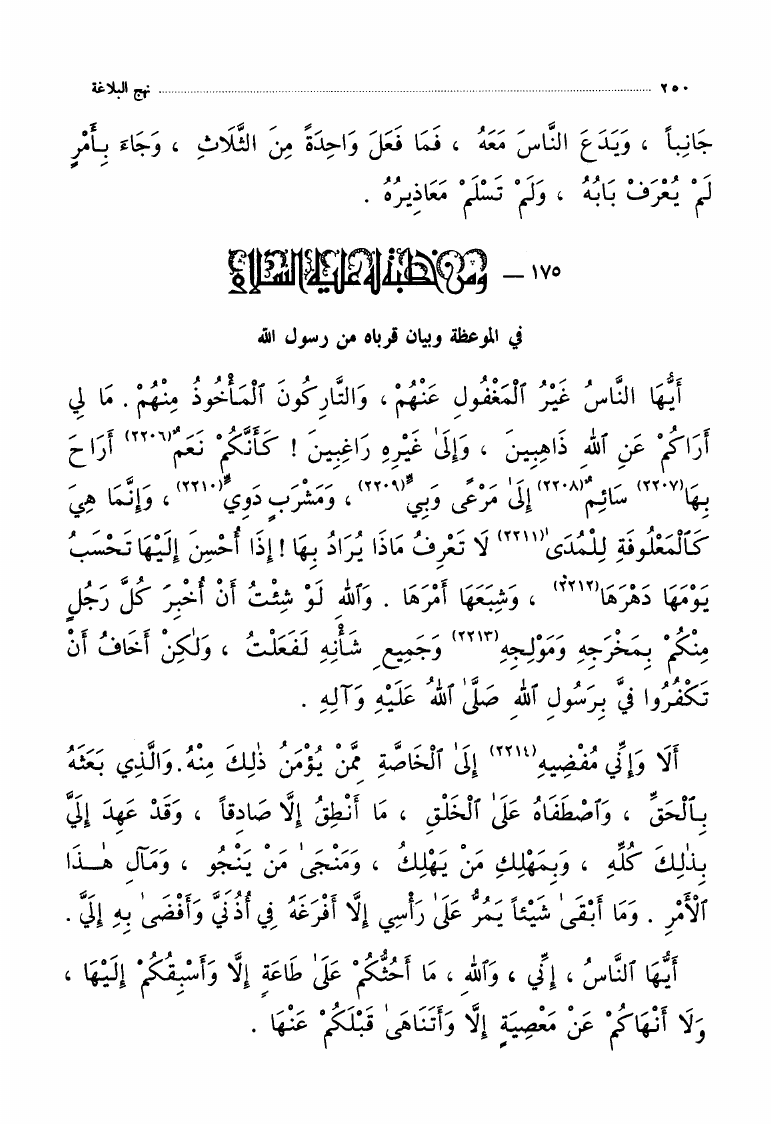 ٢٥٠ ........ نهج البلاغة
جَانِباً ، وَيَدَعَ النَّاسَ مَعَهُ ، فَمَا فَعَلَ وَاحِدَةً مِنَ الثَّلَاثِ ، وَجَاءَ بِأَمْرٍ
لَمْ يُعْرَفْ بَابُهُ ، وَلَمْ تَسْلَمْ مَعَاذِيرُهُ .
١٧٥ — ومن خطبة له عليه السلام
في الموعظة وبيان قرباه من رسول الله
أَيُّهَا النَّاسُ غَيْرُ ٱلْمَغْفُولِ عَنْهُمْ، وَالتَّارِكُونَ ٱلْمَأْخُوذُ مِنْهُمْ . مَا لِي
أَرَاكُمْ عَنِ ٱللهِ ذَاهِبِينَ ، وَإِلَىٰ غَيْرِهِ رَاغِبِينَ ! كَأَنَّكُمْ نَعَمٌ(٢٢٠٦) أَرَاحَ
بِهَا(٢٢٠٧) سَائِمٌ(٢٢٠٨) إِلَىٰ مَرْعًى وَبِيٍّ(٢٢٠٩) ، وَمَشْرَبٍ دَوِيٍّ(٢٢١٠) ، وَإِنَّمَا هِيَ
كَٱلْمَعْلُوفَةِ لِلْمُدَى(٢٢١١) لَا تَعْرِفُ مَاذَا يُرَادُ بِهَا ! إِذَا أُحْسِنَ إِلَيْهَا تَحْسَبُ
يَوْمَهَا دَهْرَهَا(٢٢١٢) ، وَشِبَعَهَا أَمْرَهَا . وَٱللهِ لَوْ شِئْتُ أَنْ أُخْبِرَ كُلَّ رَجُلٍ
مِنْكُمْ بِمَخْرَجِهِ وَمَوْلِجِهِ(٢٢١٣) وَجَمِيعِ شَأْنِهِ لَفَعَلْتُ ، وَلٰكِنْ أَخَافُ أَنْ
تَكْفُرُوا فِيَّ بِرَسُولِ ٱللهِ صَلَّىٰ ٱللهُ عَلَيْهِ وَآلِهِ .
أَلَا وَإِنِّي مُفْضِيهِ(٢٢١٤) إِلَىٰ ٱلْخَاصَّةِ مِمَّنْ يُؤْمَنُ ذٰلِكَ مِنْهُ. وَالَّذِي بَعَثَهُ
بِٱلْحَقِّ ، وَٱصْطَفَاهُ عَلَىٰ ٱلْخَلْقِ ، مَا أَنْطِقُ إِلَّا صَادِقاً ، وَقَدْ عَهِدَ إِلَيَّ
بِذٰلِكَ كُلِّهِ ، وَبِمَهْلِكِ مَنْ يَهْلِكُ ، وَمَنْجَىٰ مَنْ يَنْجُو ، وَمَآلِ هٰـذَا
ٱلْأَمْرِ . وَمَا أَبْقَىٰ شَيْئاً يَمُرُّ عَلَىٰ رَأْسِي إِلَّا أَفْرَغَهُ فِي أُذُنَيَّ وَأَفْضَىٰ بِهِ إِلَيَّ .
أَيُّهَا ٱلنَّاسُ ، إِنِّي ، وَٱللهِ ، مَا أَحُثُّكُمْ عَلَىٰ طَاعَةٍ إِلَّا وَأَسْبِقُكُمْ إِلَيْهَا ،
وَلَا أَنْهَاكُمْ عَنْ مَعْصِيَةٍ إِلَّا وَأَتَنَاهَىٰ قَبْلَكُمْ عَنْهَا .